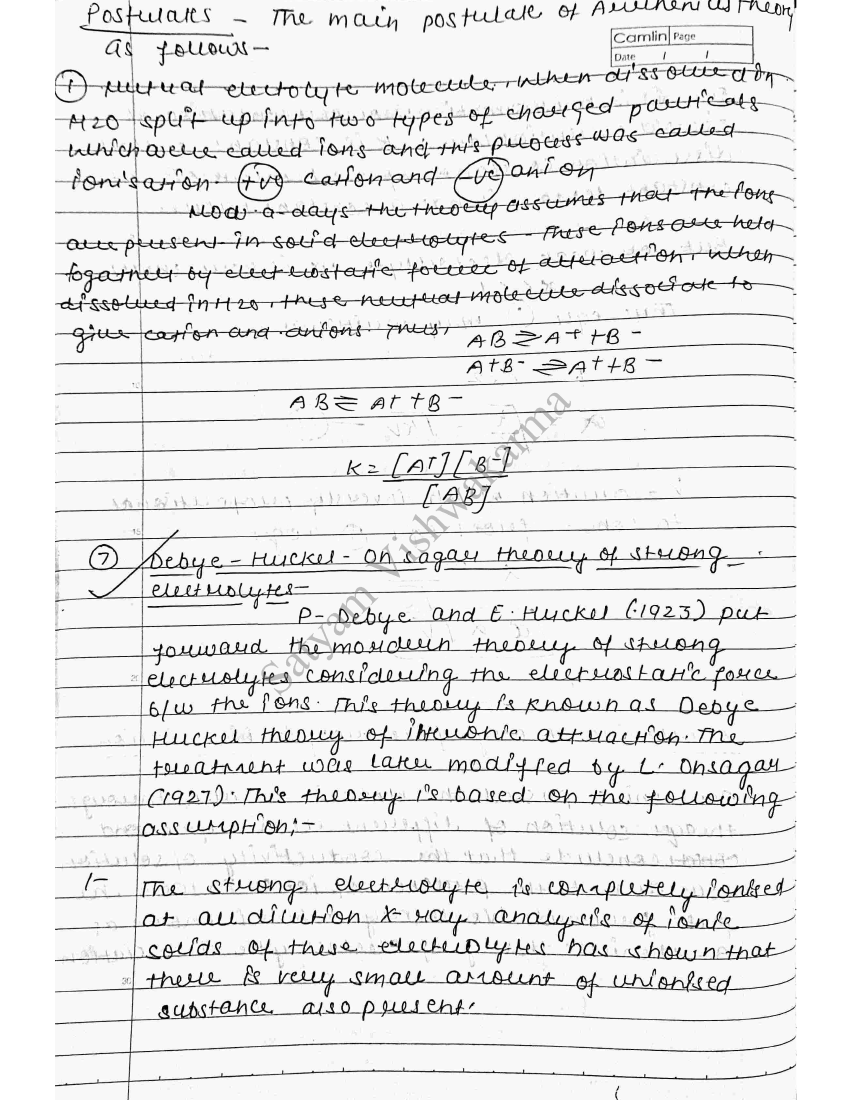 Postulates - The main postulate of Arrhenius theory
as follows -
Camlin Page
Date / /
① Nutual electolyte molecule, when dissolved on
H2O split up into two types of charged particals
which were called ions and this process was called
ionisation. +ve cation and -ve anion
Now-a-days the theory assumes that the Ions
are present in solid electrolytes - These Ions are held
togather by electrostatic forcec of attraction, when
dissolved in H2O, these neutral molecule dissociate to
give cation and anions. Thus,
AB ⇌ A+ + B-
A+B- ⇌ A+ + B-
AB ⇌ A+ + B-
K = [A+][B-]
[AB]
⑦ Debye - Huckel - On sagar theory of strong
electrolytes -
P- Debye and E. Huckel (1923) put
forward the mordern theory of strong
electrolytes considering the electrostatic force
b/w the ions. This theory is known as Debye
Huckel theory of interonic attraction. The
treatment was later modified by L. Onsagar
(1927). This theory is based on the following
assumption;-
1- The strong electrolyte is completely ionised
at all dilution X-ray analysis of ionic
solids of these electrolytes has shown that
there is very small amount of unionised
substance also present.
Satyam Vishwakarma